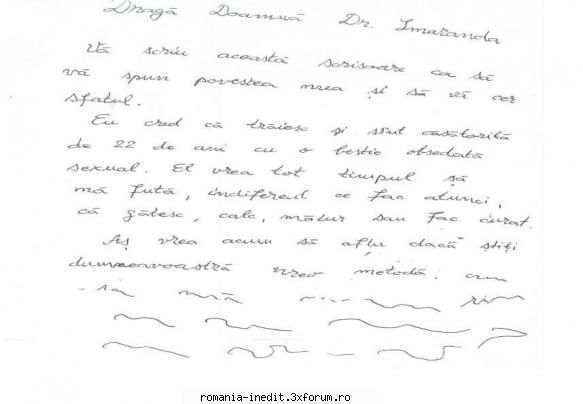 Dragă Doamnă Dr. Smaranda
Vă scriu această scrisoare ca să
vă spun povestea mea și să vă cer
sfatul.
Eu cred că trăiesc și sînt căsătorită
de 22 de ani cu o bestie obsedată
sexual. El vrea tot timpul să
mă fută, indiferent ce fac atunci,
că gătesc, calc, mătur sau fac curat.
Aș vrea acum să aflu dacă știți
dumneavoastră vreo metodă, cum
să mă
romania-inedit.3xforum.ro